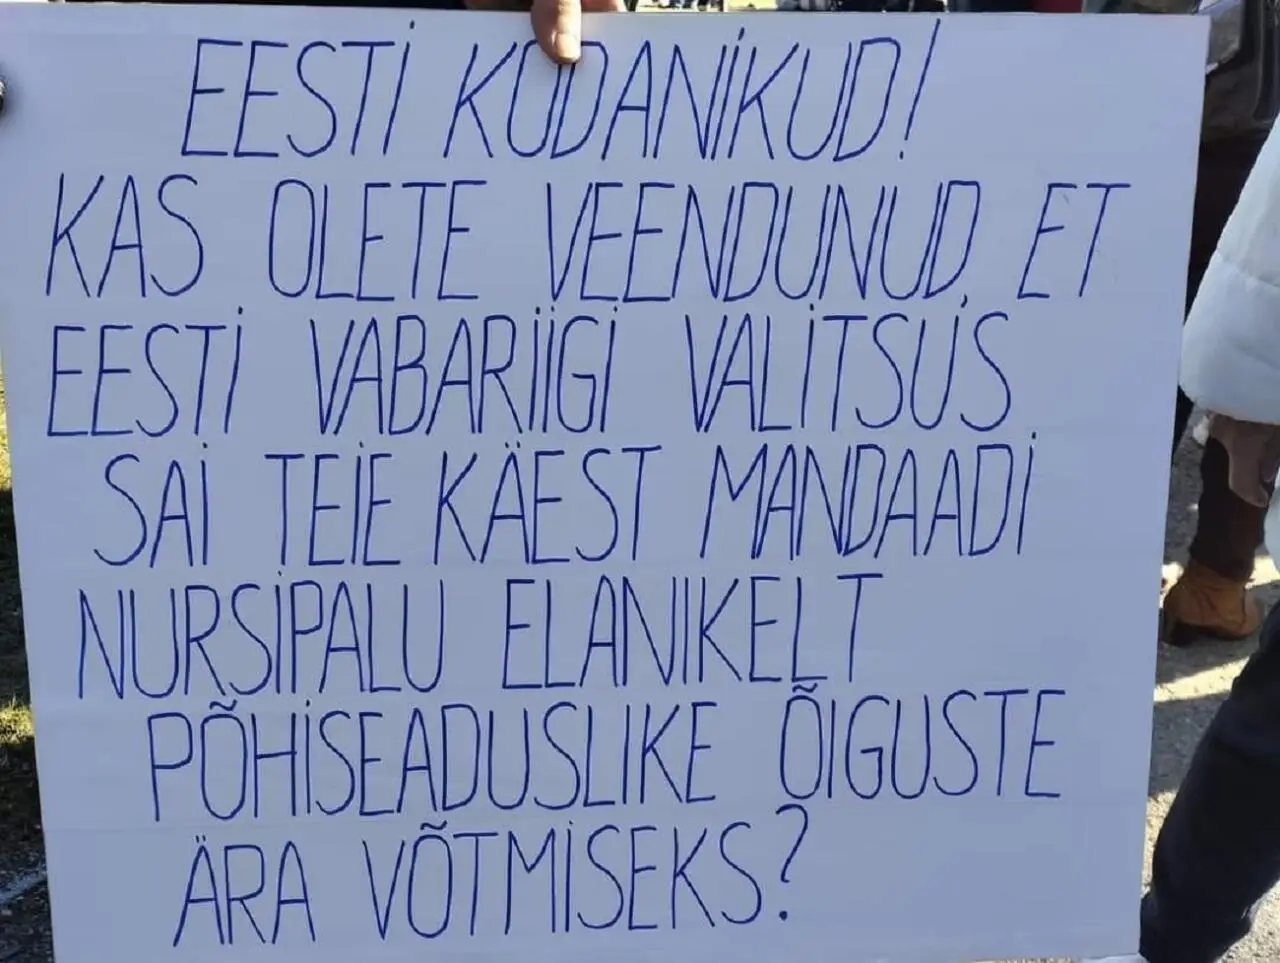 EESTI KODANIKUD!
KAS OLETE VEENDUNUD, ET
EESTI VABARIIGI VALITSUS
SAI TEIE KÄEST MANDAADI
NURSIPALU ELANIKELT
PÕHISEADUSLIKE ÕIGUSTE
ÄRA VÕTMISEKS?